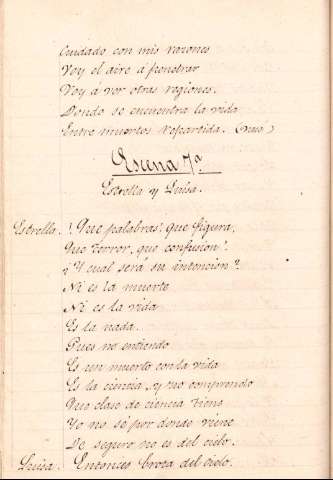 Cuidado con mis razones
Voy el aire á penetrar
Voy á ver otras regiones.
Donde se encuentra la vida
Entre muertos repartida. (vase)
Escena 7ª
Estrella y Luisa.
Estrella. ¡Que palabras, que figura,
Que terror, que confusion!
¿Y cual será su intencion?
Ni es la muerte
Ni es la vida
Es la nada.
Pues no entiendo
Es un muerto con la vida
Es la ciencia, y no comprendo
Que clase de ciencia tiene
Yo no sé por donde viene
De seguro no es del cielo.
Luisa. Entonces brota del suelo.